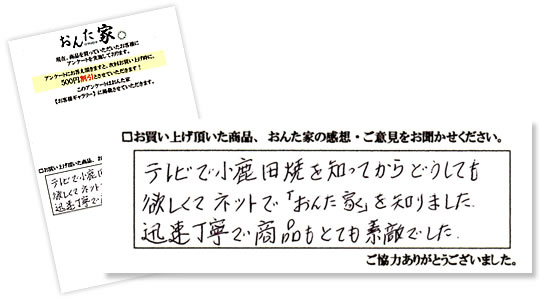 おんた家
現在、商品を買っていただいたお客様に
アンケートを実施しております。
アンケートにお答え頂きますと、次回お買い上げ時に、
500円割引とさせていただきます！
このアンケートはおんた家
【お客様ギャラリー】に掲載させていただきます。
□お買い上げ頂いた商品、お
テレビで小鹿田
欲しくてネット
迅速丁寧で
□お買い上げ頂いた商品、おんた家の感想・ご意見をお聞かせください。
テレビで小鹿田焼を知ってからどうしても
欲しくてネットで「おんた家」を知りました.
迅速丁寧で商品もとても素敵でした.
ご協力ありがとうございました。